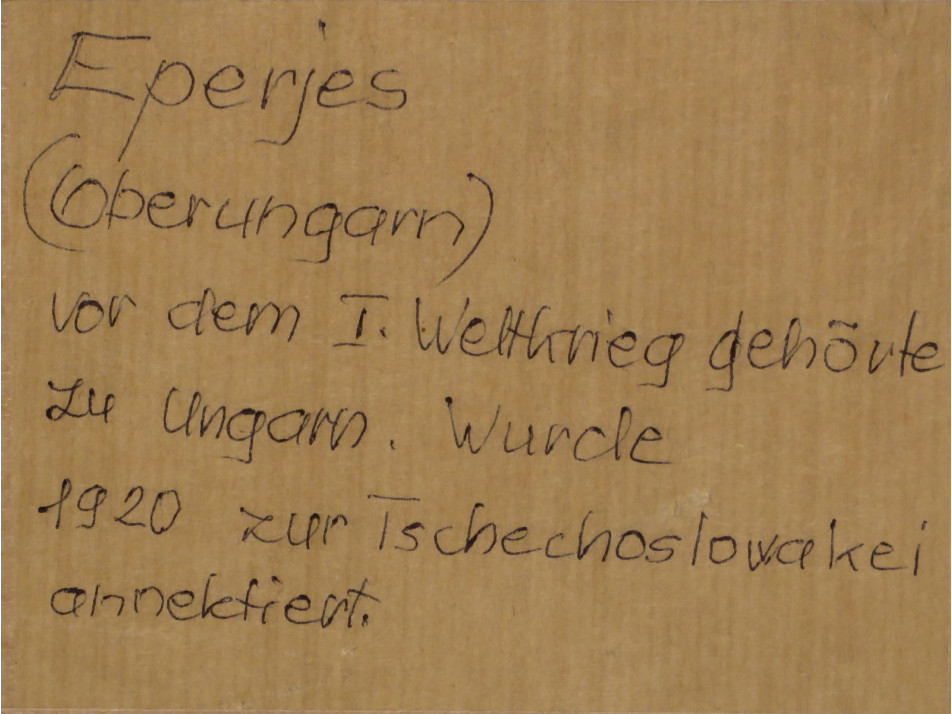 Eperjes
(Oberungarn)
vor dem I. Weltkrieg gehörte
zu Ungarn. Wurde
1920 zur Tschechoslowakei
annektiert.